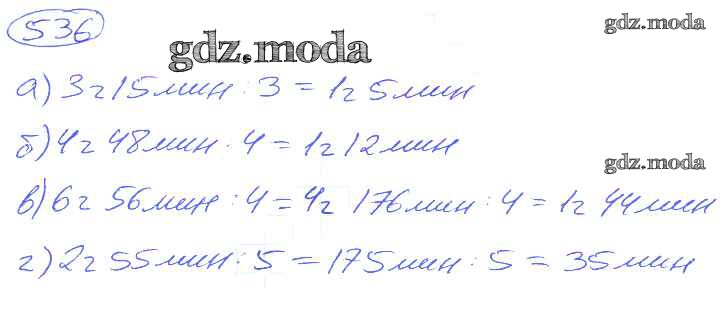 536
gdz.moda
gdz.moda
а) 3ч 15мин : 3 = 1ч 5мин
б) 4ч 48мин : 4 = 1ч 12мин
gdz.moda
в) 6ч 56мин : 4 = 4ч 176мин : 4 = 1ч 44мин
г) 2ч 55мин : 5 = 175мин : 5 = 35мин